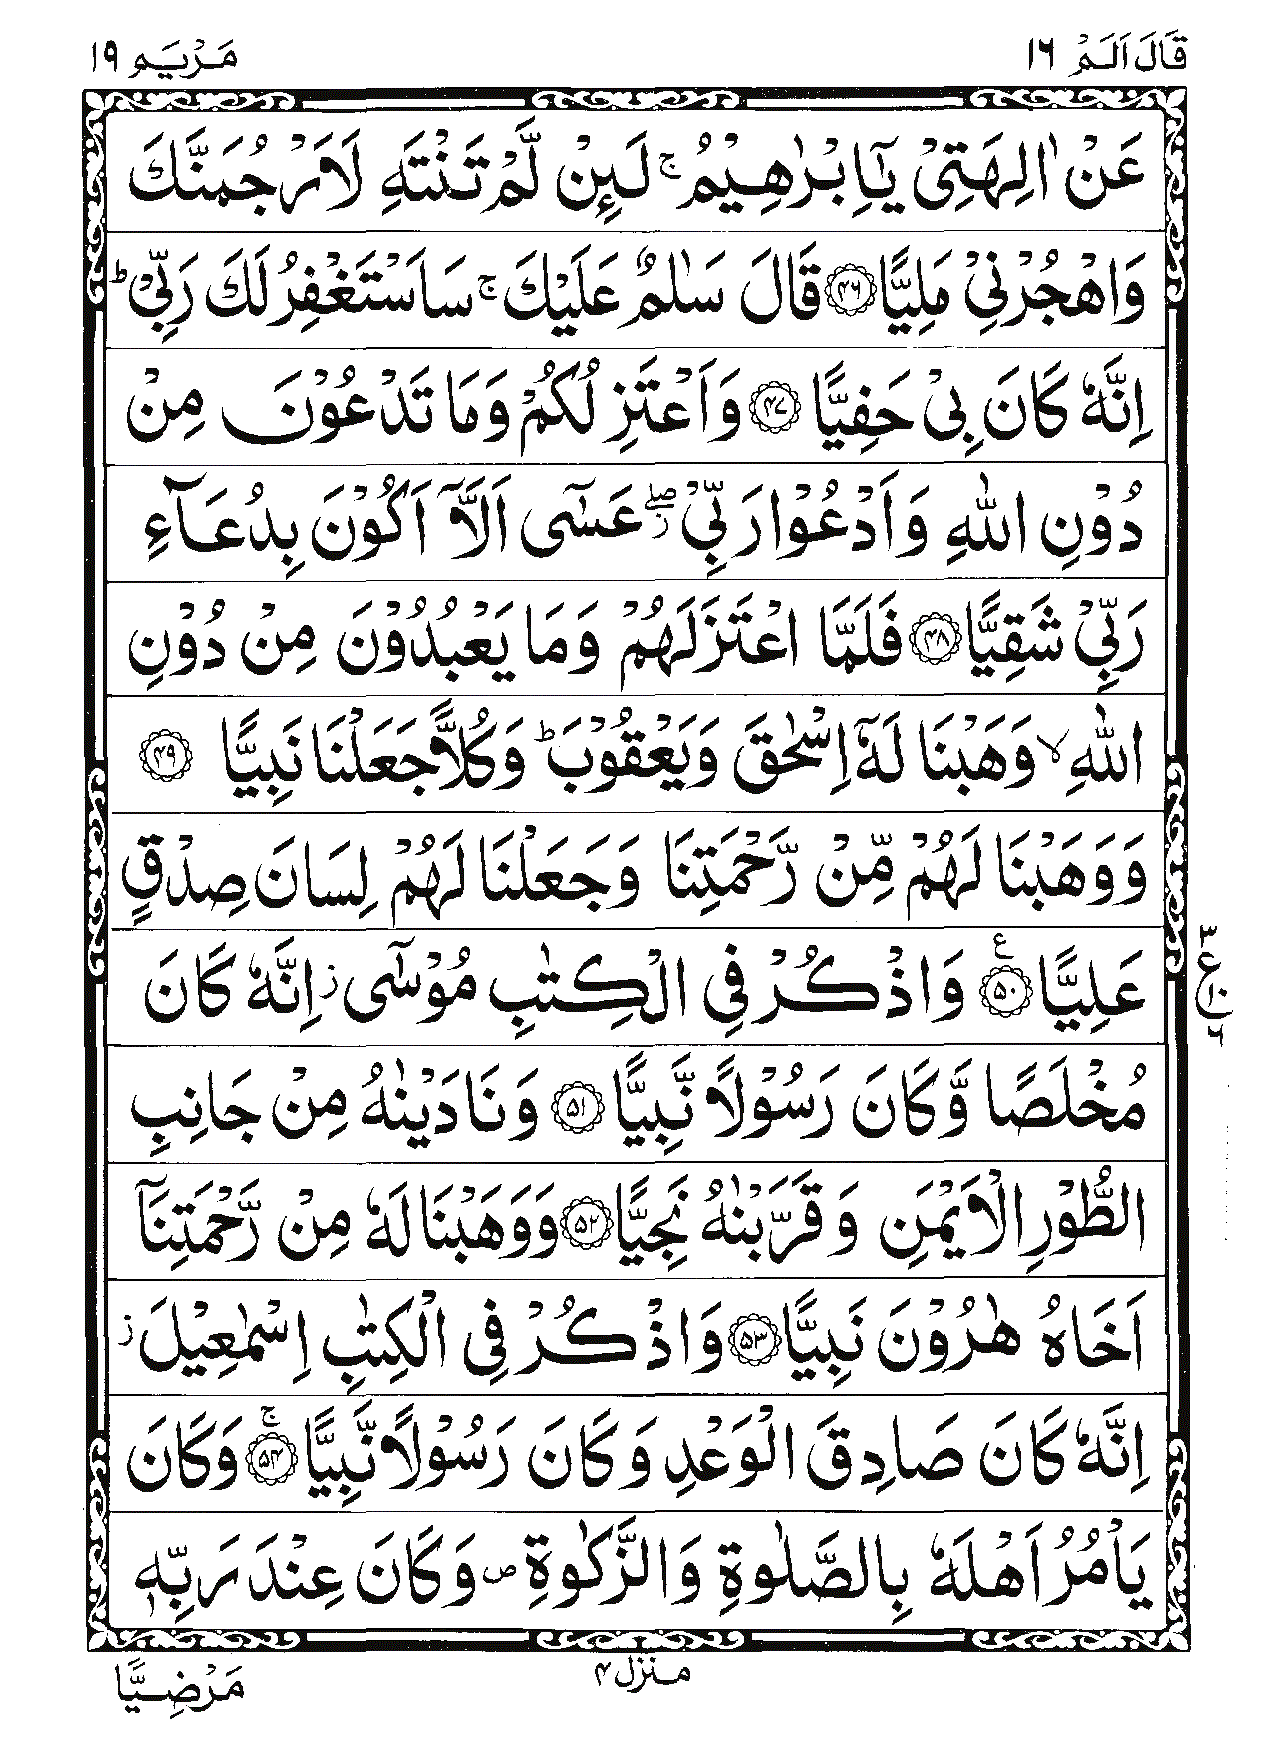 قَالَ اَلَمْ ١٦ مَرْيَم ١٩
عَنْ اٰلِهَتِيْ يٰۤاِبْرٰهِيْمُ ۚ لَئِنْ لَّمْ تَنْتَهِ لَاَرْجُمَنَّكَ
وَاهْجُرْنِيْ مَلِيًّا ﴿۴۶﴾ قَالَ سَلٰمٌ عَلَيْكَ ۚ سَاَسْتَغْفِرُ لَكَ رَبِّيْ ؕ
اِنَّهٗ كَانَ بِيْ حَفِيًّا ﴿۴۷﴾ وَاَعْتَزِلُكُمْ وَمَا تَدْعُوْنَ مِنْ
دُوْنِ اللّٰهِ وَاَدْعُوْا رَبِّيْ ۖ ز عَسٰۤى اَلَّاۤ اَكُوْنَ بِدُعَآءِ
رَبِّيْ شَقِيًّا ﴿۴۸﴾ فَلَمَّا اعْتَزَلَهُمْ وَمَا يَعْبُدُوْنَ مِنْ دُوْنِ
اللّٰهِ ۙ وَهَبْنَا لَهٗۤ اِسْحٰقَ وَيَعْقُوْبَ ؕ وَكُلًّا جَعَلْنَا نَبِيًّا ﴿۴۹﴾
وَوَهَبْنَا لَهُمْ مِّنْ رَّحْمَتِنَا وَجَعَلْنَا لَهُمْ لِسَانَ صِدْقٍ
عَلِيًّا ﴿۵۰﴾ ع وَاذْكُرْ فِي الْكِتٰبِ مُوْسٰۤى ز اِنَّهٗ كَانَ
٣ ع ١٠ ٦
مُخْلَصًا وَّكَانَ رَسُوْلًا نَّبِيًّا ﴿۵۱﴾ وَنَادَيْنٰهُ مِنْ جَانِبِ
الطُّوْرِ الْاَيْمَنِ وَقَرَّبْنٰهُ نَجِيًّا ﴿۵۲﴾ وَوَهَبْنَا لَهٗ مِنْ رَّحْمَتِنَاۤ
اَخَاهُ هٰرُوْنَ نَبِيًّا ﴿۵۳﴾ وَاذْكُرْ فِي الْكِتٰبِ اِسْمٰعِيْلَ ز
اِنَّهٗ كَانَ صَادِقَ الْوَعْدِ وَكَانَ رَسُوْلًا نَّبِيًّا ﴿۵۴﴾ ۚ وَكَانَ
يَاْمُرُ اَهْلَهٗ بِالصَّلٰوةِ وَالزَّكٰوةِ ص وَكَانَ عِنْدَ رَبِّهٖ
منزل ۴
مَرْضِيًّا